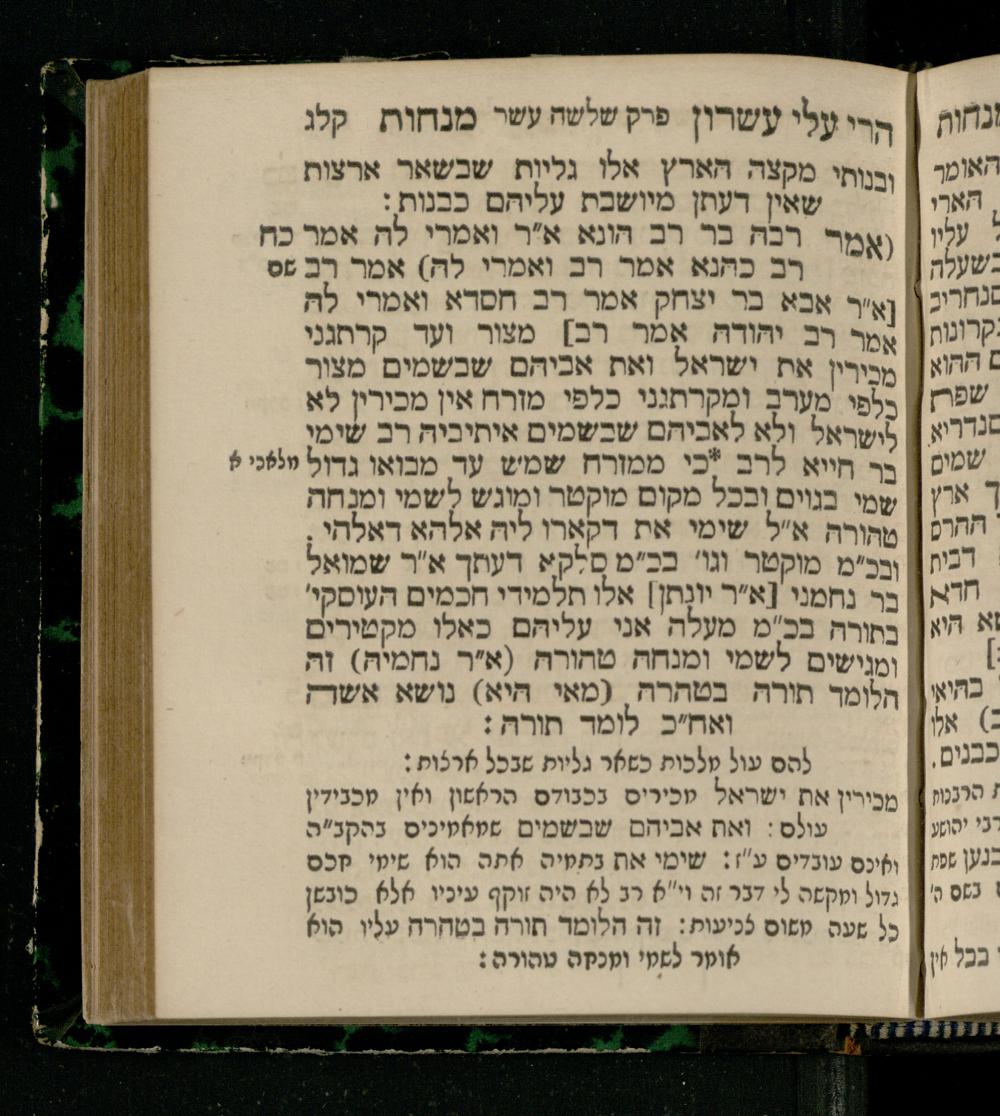 הרי עלי עשרון פרק שלשה עשר מנחות קלג
ובנותי מקצה הארץ אלו גליות שבשאר ארצות
שאין דעתן מיושבת עליהם כבנות:
(אמר רבה בר רב הונא א״ר ואמרי לה אמר כח
רב כהנא אמר רב ואמרי לה) אמר רב שם
[א״ר אבא בר יצחק אמר רב חסדא ואמרי לה
אמר רב יהודה אמר רב] מצור ועד קרתגני
מכירין את ישראל ואת אביהם שבשמים מצור
כלפי מערב ומקרתגני כלפי מזרח אין מכירין לא
לישראל ולא לאביהם שבשמים איתיביה רב שימי
בר חייא לרב *כי ממזרח שמש עד מבואו גדול מלאכי א
שמי בגוים ובכל מקום מוקטר ומוגש לשמי ומנחה
טהורה א״ל שימי את דקארו ליה אלהא דאלהי.
ובכ״מ מוקטר וגו׳ בכ״מ סלקא דעתך א״ר שמואל
בר נחמני [א״ר יונתן] אלו תלמידי חכמים העוסקי׳
בתורה בכ״מ מעלה אני עליהם כאלו מקטירים
ומגישים לשמי ומנחה טהורה (א״ר נחמיה) זה
הלומד תורה בטהרה (מאי היא) נושא אשה
ואח״כ לומד תורה:
להם עול מלכות כשאר גליות שבכל ארצות:
מכירין את ישראל מכירים בכבודם הראשון ואין מכבידין
עולם: ואת אביהם שבשמים שמאמינים בהקב״ה
ואינם עובדים ע״ז: שימי את בתמיה אתה הוא שימי חכם
גדול ומקשה לי דבר זה וי״א רב לא היה זוקף עיניו אלא כובשן
כל שעה משום צניעות: זה הלומד תורה בטהרה עליו הוא
אומר לשמי ומנחה טהורה:
מנחות
האומר
הארי
עליו
בשעלה
סנחריב
קרונות
ההוא
שפת
סנדריא
שמים
ארץ
ההרס
דבית
חדא
היא
בהיאי
אלו
כבנים.
הרבנות
יהושע
בנען שפת
בשם ה׳
בבל אין